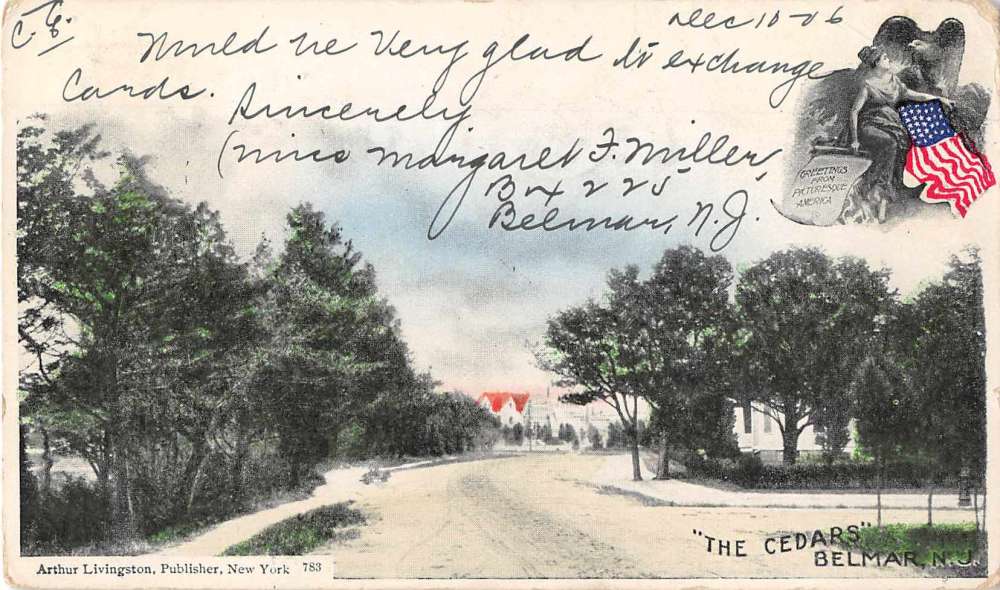 C.C.
Dec 10-06
Would be Very glad to exchange
Cards.
Sincerely
(Miss Margaret F. Miller,
Box 225
Belmar, N.J.
GREETINGS
FROM
PICTURESQUE
AMERICA
"THE CEDARS"
BELMAR, N.J.
Arthur Livingston, Publisher, New York 783